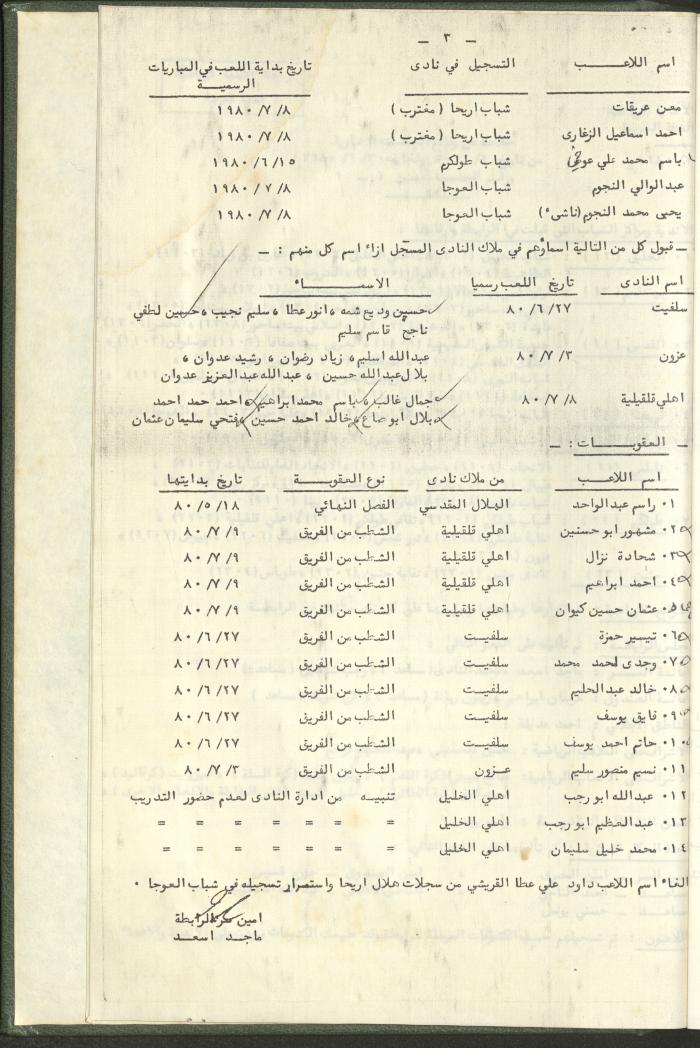 - ٣ -
اسم اللاعب التسجيل في نادى تاريخ بداية اللعب في المباريات الرسمية
معن عريقات شباب اريحا ( مغترب ) ١٩٨٠ /٧ /٨
احمد اسماعيل الزغارى شباب اريحا ( مغترب ) ١٩٨٠ /٧ /٨
باسم محمد علي شباب طولكرم ١٩٨٠ /٦ /١٥
عبدالوالي النجوم شباب العوجا ١٩٨٠ /٧ /٨
يحيى محمد النجوم (ناشىء) شباب العوجا ١٩٨٠ /٧ /٨
ـ قبول كل من التالية اسماؤهم في ملاك النادى المسجل ازاء اسم كل منهم : ـ
اسم النادى تاريخ اللعب رسميا الاسماء
سلفيت ٨٠ /٦ /٢٧ حسين وديع شمه ، انور عطا ، سليم نجيب ، حسين لطفي
ناجح قاسم سليم
عزون ٨٠ /٧ /٣ عبدالله اسليم ، زياد رضوان ، رشيد عدوان ،
بلال عبدالله حسين ، عبدالله عبدالعزيز عدوان
اهلي قلقيلية ٨٠ /٧ /٨ جمال غالب ، باسم محمد ابراهيم ، احمد حمد احمد
بلال ابو صاع ، خالد احمد حسين ، فتحي سليمان عثمان
ـ العقوبات : ـ
اسم اللاعب من ملاك نادى نوع العقوبة تاريخ بدايتها
١٠ راسم عبدالواحد الهلال المقدسي الفصل النهائي ٨٠ /٥ /١٨
٢٠ مشهور ابو حسنين اهلي قلقيلية الشطب من الفريق ٨٠ /٧ /٩
٣٠ شحادة نزال اهلي قلقيلية الشطب من الفريق ٨٠ /٧ /٩
٤٠ احمد ابراهيم اهلي قلقيلية الشطب من الفريق ٨٠ /٧ /٩
٥٠ عثمان حسين كيوان اهلي قلقيلية الشطب من الفريق ٨٠ /٧ /٩
٦٠ تيسير حمزة سلفيت الشطب من الفريق ٨٠ /٦ /٢٧
٧٠ وجدى احمد محمد سلفيت الشطب من الفريق ٨٠ /٦ /٢٧
٨٠ خالد عبدالحليم سلفيت الشطب من الفريق ٨٠ /٦ /٢٧
٩٠ فايق يوسف سلفيت الشطب من الفريق ٨٠ /٦ /٢٧
١٠٠ حاتم احمد يوسف سلفيت الشطب من الفريق ٨٠ /٦ /٢٧
١١٠ نسيم منصور سليم عزون الشطب من الفريق ٨٠ /٧ /٣
١٢٠ عبدالله ابو رجب اهلي الخليل تنبيه من ادارة النادى لعدم حضور التدريب
١٣٠ عبدالعظيم ابو رجب اهلي الخليل = = = = = =
١٤٠ محمد خليل سليمان اهلي الخليل = = = = = =
الغاء اسم اللاعب داود علي عطا القريشي من سجلات هلال اريحا واستمرار تسجيله في شباب العوجا ٠
امين سر الرابطة
ماجد اسعد